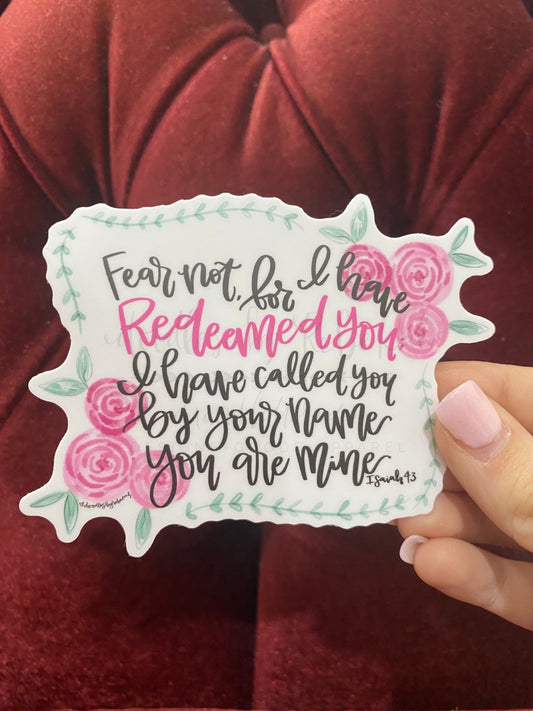 Fear not, for I have
Redeemed you;
I have called you
by your name
you are mine
Isaiah 43